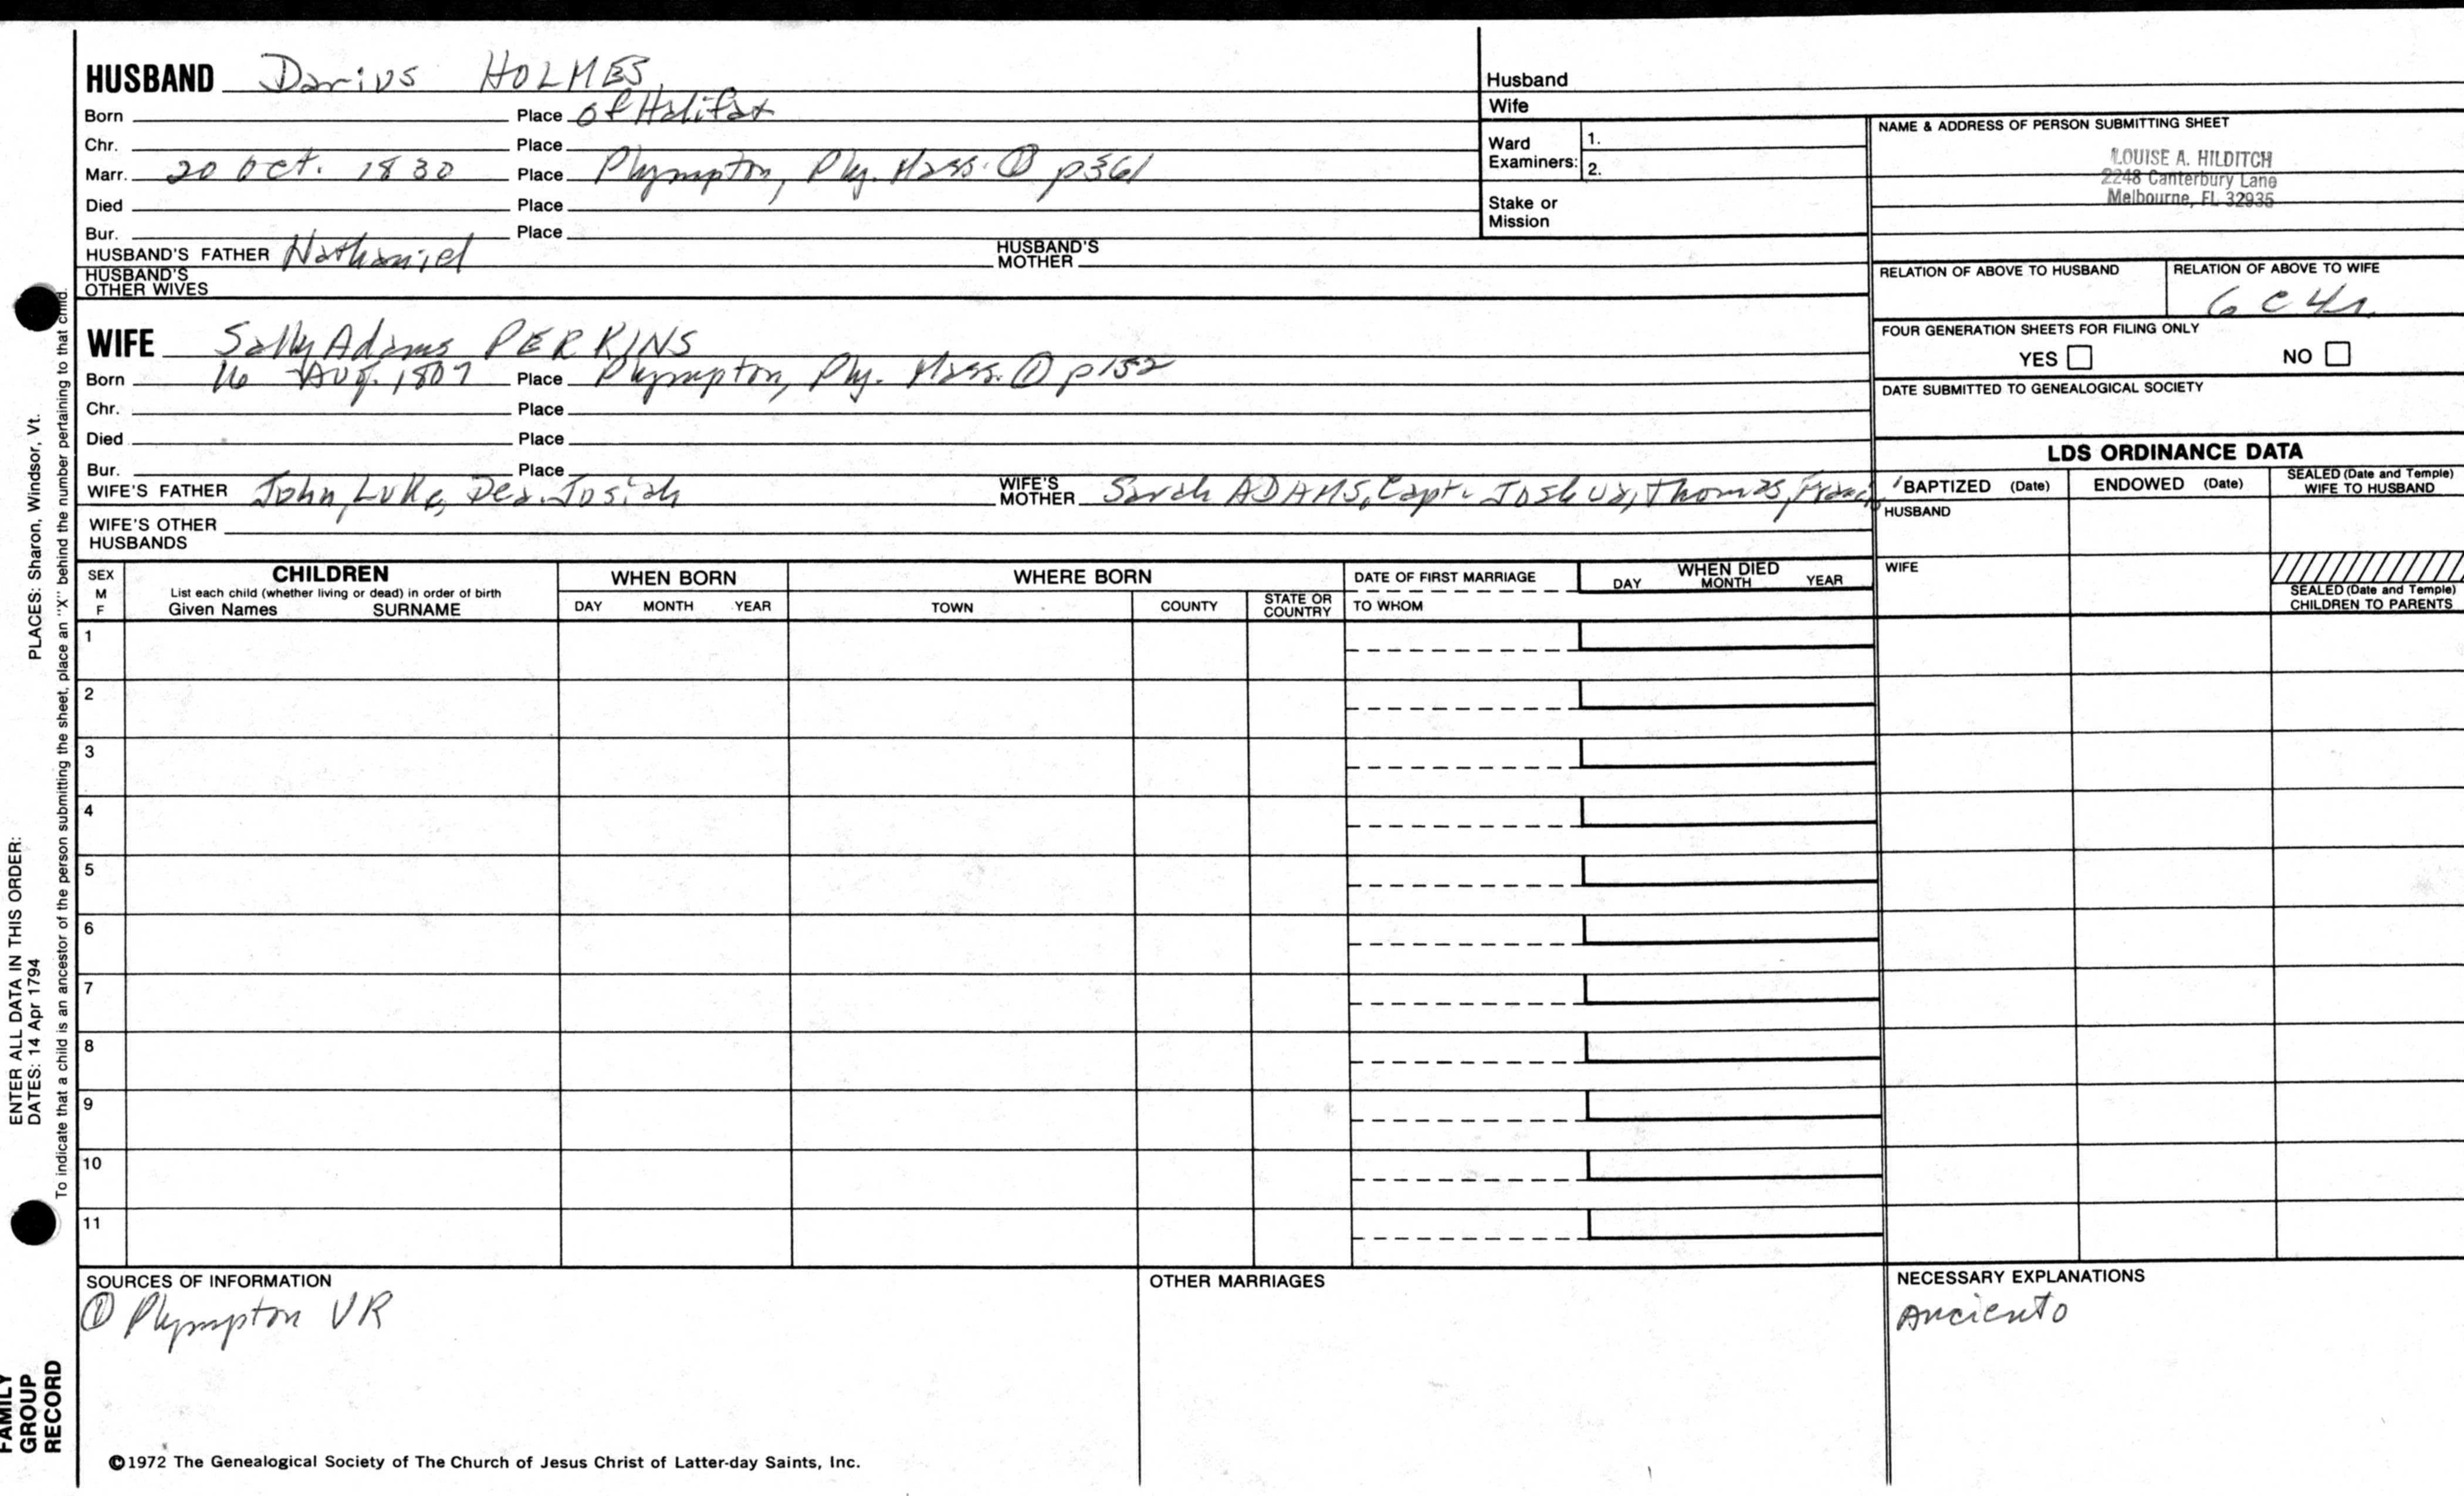 HUSBAND Darius HOLMES
Born Place of Halifax
Chr. Place
Marr. 20 Oct. 1830 Place Plympton, Ply. Mass. ① p361
Died Place
Bur. Place
HUSBAND'S FATHER Nathaniel HUSBAND'S MOTHER
HUSBAND'S OTHER WIVES
Husband
Wife
Ward Examiners: 1.
2.
Stake or Mission
NAME & ADDRESS OF PERSON SUBMITTING SHEET
LOUISE A. HILDITCH
2248 Canterbury Lane
Melbourne, FL 32935
RELATION OF ABOVE TO HUSBAND RELATION OF ABOVE TO WIFE
6 C 4r
FOUR GENERATION SHEETS FOR FILING ONLY
YES NO
DATE SUBMITTED TO GENEALOGICAL SOCIETY
WIFE Sally Adams PERKINS
Born 16 Aug. 1807 Place Plympton, Ply. Mass. ① p152
Chr. Place
Died Place
Bur. Place
WIFE'S FATHER John, Luke, Dea. Josiah WIFE'S MOTHER Sarah ADAMS, Capt. Joshua, Thomas, Franc
WIFE'S OTHER HUSBANDS
LDS ORDINANCE DATA
BAPTIZED (Date) ENDOWED (Date) SEALED (Date and Temple) WIFE TO HUSBAND
HUSBAND
WIFE
SEALED (Date and Temple) CHILDREN TO PARENTS
SEX M F
CHILDREN
List each child (whether living or dead) in order of birth
Given Names SURNAME
WHEN BORN
DAY MONTH YEAR
WHERE BORN
TOWN COUNTY STATE OR COUNTRY
DATE OF FIRST MARRIAGE
TO WHOM
WHEN DIED
DAY MONTH YEAR
1
2
3
4
5
6
7
8
9
10
11
SOURCES OF INFORMATION
① Plympton VR
OTHER MARRIAGES
NECESSARY EXPLANATIONS
Anciento
©1972 The Genealogical Society of The Church of Jesus Christ of Latter-day Saints, Inc.
ENTER ALL DATA IN THIS ORDER:
DATES: 14 Apr 1794 PLACES: Sharon, Windsor, Vt.
To indicate that a child is an ancestor of the person submitting the sheet, place an "X" behind the number pertaining to that child.
FAMILY
GROUP
RECORD